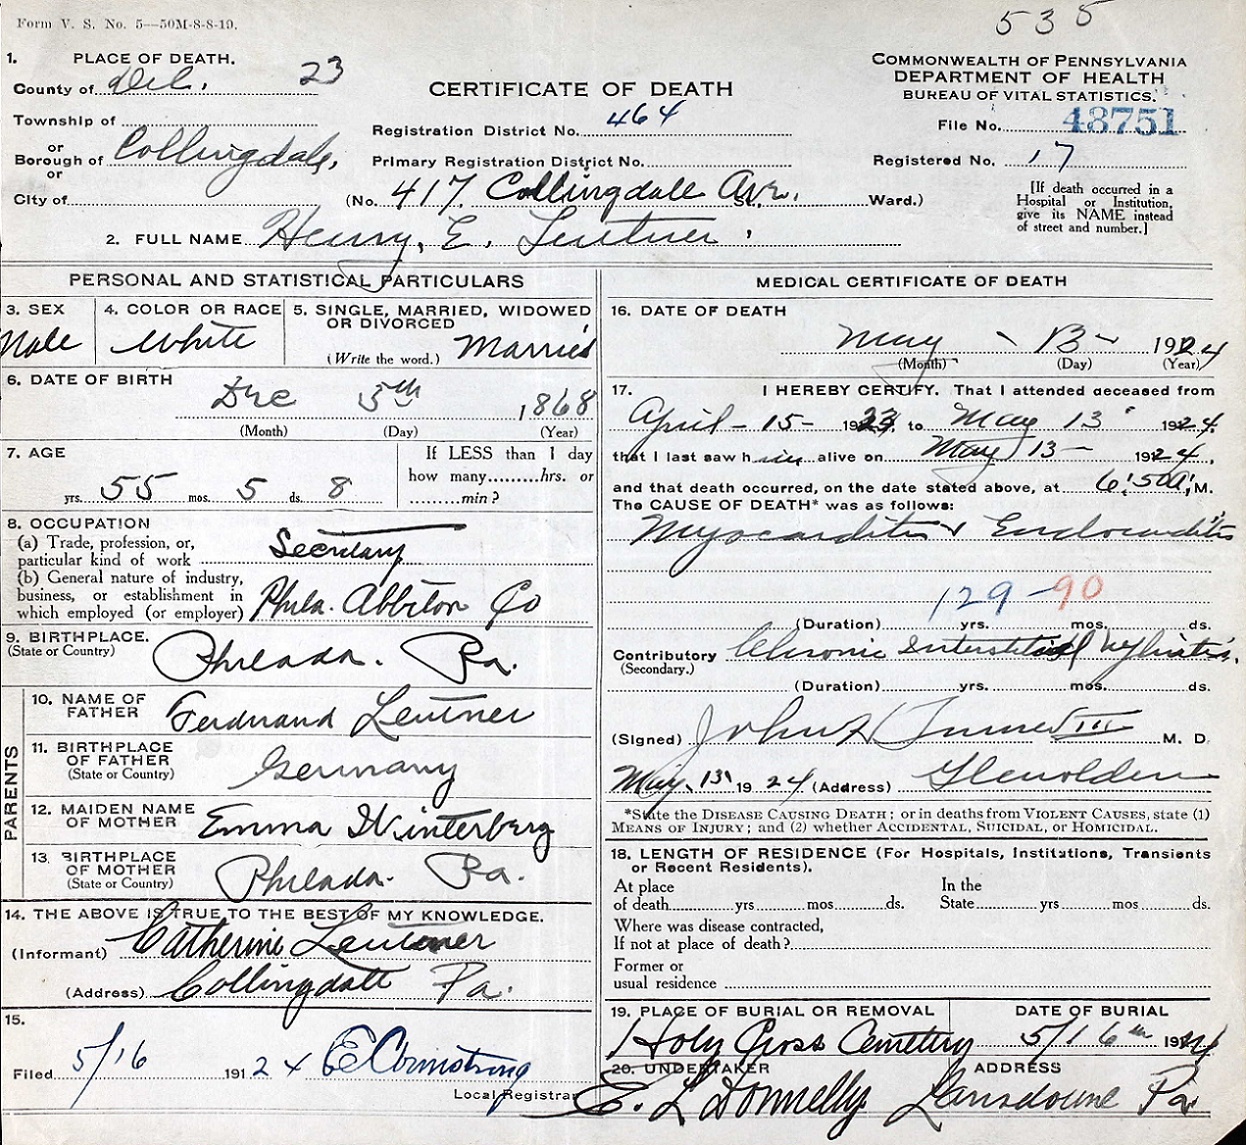 Form V. S. No. 5—50M-8-8-19.
535
1. PLACE OF DEATH.
County of Del. 23
Township of
or
Borough of Collingdale,
or
City of
CERTIFICATE OF DEATH
Registration District No. 464
Primary Registration District No.
(No. 417 Collingdale Ave. Ward.)
COMMONWEALTH OF PENNSYLVANIA
DEPARTMENT OF HEALTH
BUREAU OF VITAL STATISTICS.
File No. 48751
Registered No. 17
[If death occurred in a
Hospital or Institution,
give its NAME instead
of street and number.]
2. FULL NAME Henry, E. Leutner.
PERSONAL AND STATISTICAL PARTICULARS
3. SEX
Male
4. COLOR OR RACE
White
5. SINGLE, MARRIED, WIDOWED
OR DIVORCED
(Write the word.) Married
6. DATE OF BIRTH
Dec 5th 1868
(Month) (Day) (Year)
7. AGE
yrs. 55 mos. 5 ds. 8
If LESS than 1 day
how many hrs. or
min?
8. OCCUPATION
(a) Trade, profession, or,
particular kind of work Secretary
(b) General nature of industry,
business, or establishment in
which employed (or employer) Phila. Co
9. BIRTHPLACE.
(State or Country) Philada. Pa.
PARENTS
10. NAME OF
FATHER Ferdinand Leutner
11. BIRTHPLACE
OF FATHER
(State or Country) Germany
12. MAIDEN NAME
OF MOTHER Emma Winterberg
13. BIRTHPLACE
OF MOTHER
(State or Country) Philada. Pa.
14. THE ABOVE IS TRUE TO THE BEST OF MY KNOWLEDGE.
(Informant) Catherine Leutner
(Address) Collingdale Pa.
15.
Filed 5/16 191 24 E Armstrong
Local Registrar
MEDICAL CERTIFICATE OF DEATH
16. DATE OF DEATH
May - 13 - 1924
(Month) (Day) (Year)
17. I HEREBY CERTIFY. That I attended deceased from
April - 15 - 1923, to May 13 1924.
that I last saw him alive on May 13 - 1924,
and that death occurred, on the date stated above, at 6:50 A. M.
The CAUSE OF DEATH* was as follows:
Myocarditis & Endocarditis
129 - 90
(Duration) yrs. mos. ds.
Contributory Chronic Interstitial Nephritis.
(Secondary.)
(Duration) yrs. mos. ds.
(Signed) John H Turner III M. D.
May. 13, 1924 (Address) Glenolden
*State the DISEASE CAUSING DEATH; or in deaths from VIOLENT CAUSES, state (1)
MEANS OF INJURY; and (2) whether ACCIDENTAL, SUICIDAL, or HOMICIDAL.
18. LENGTH OF RESIDENCE (For Hospitals, Institutions, Transients
or Recent Residents).
At place
of death yrs mos ds.
In the
State yrs mos ds.
Where was disease contracted,
If not at place of death?
Former or
usual residence
19. PLACE OF BURIAL OR REMOVAL
Holy Cross Cemetery
DATE OF BURIAL
5/16th 1924
20. UNDERTAKER
E. L Donnelly
ADDRESS
Lansdowne Pa